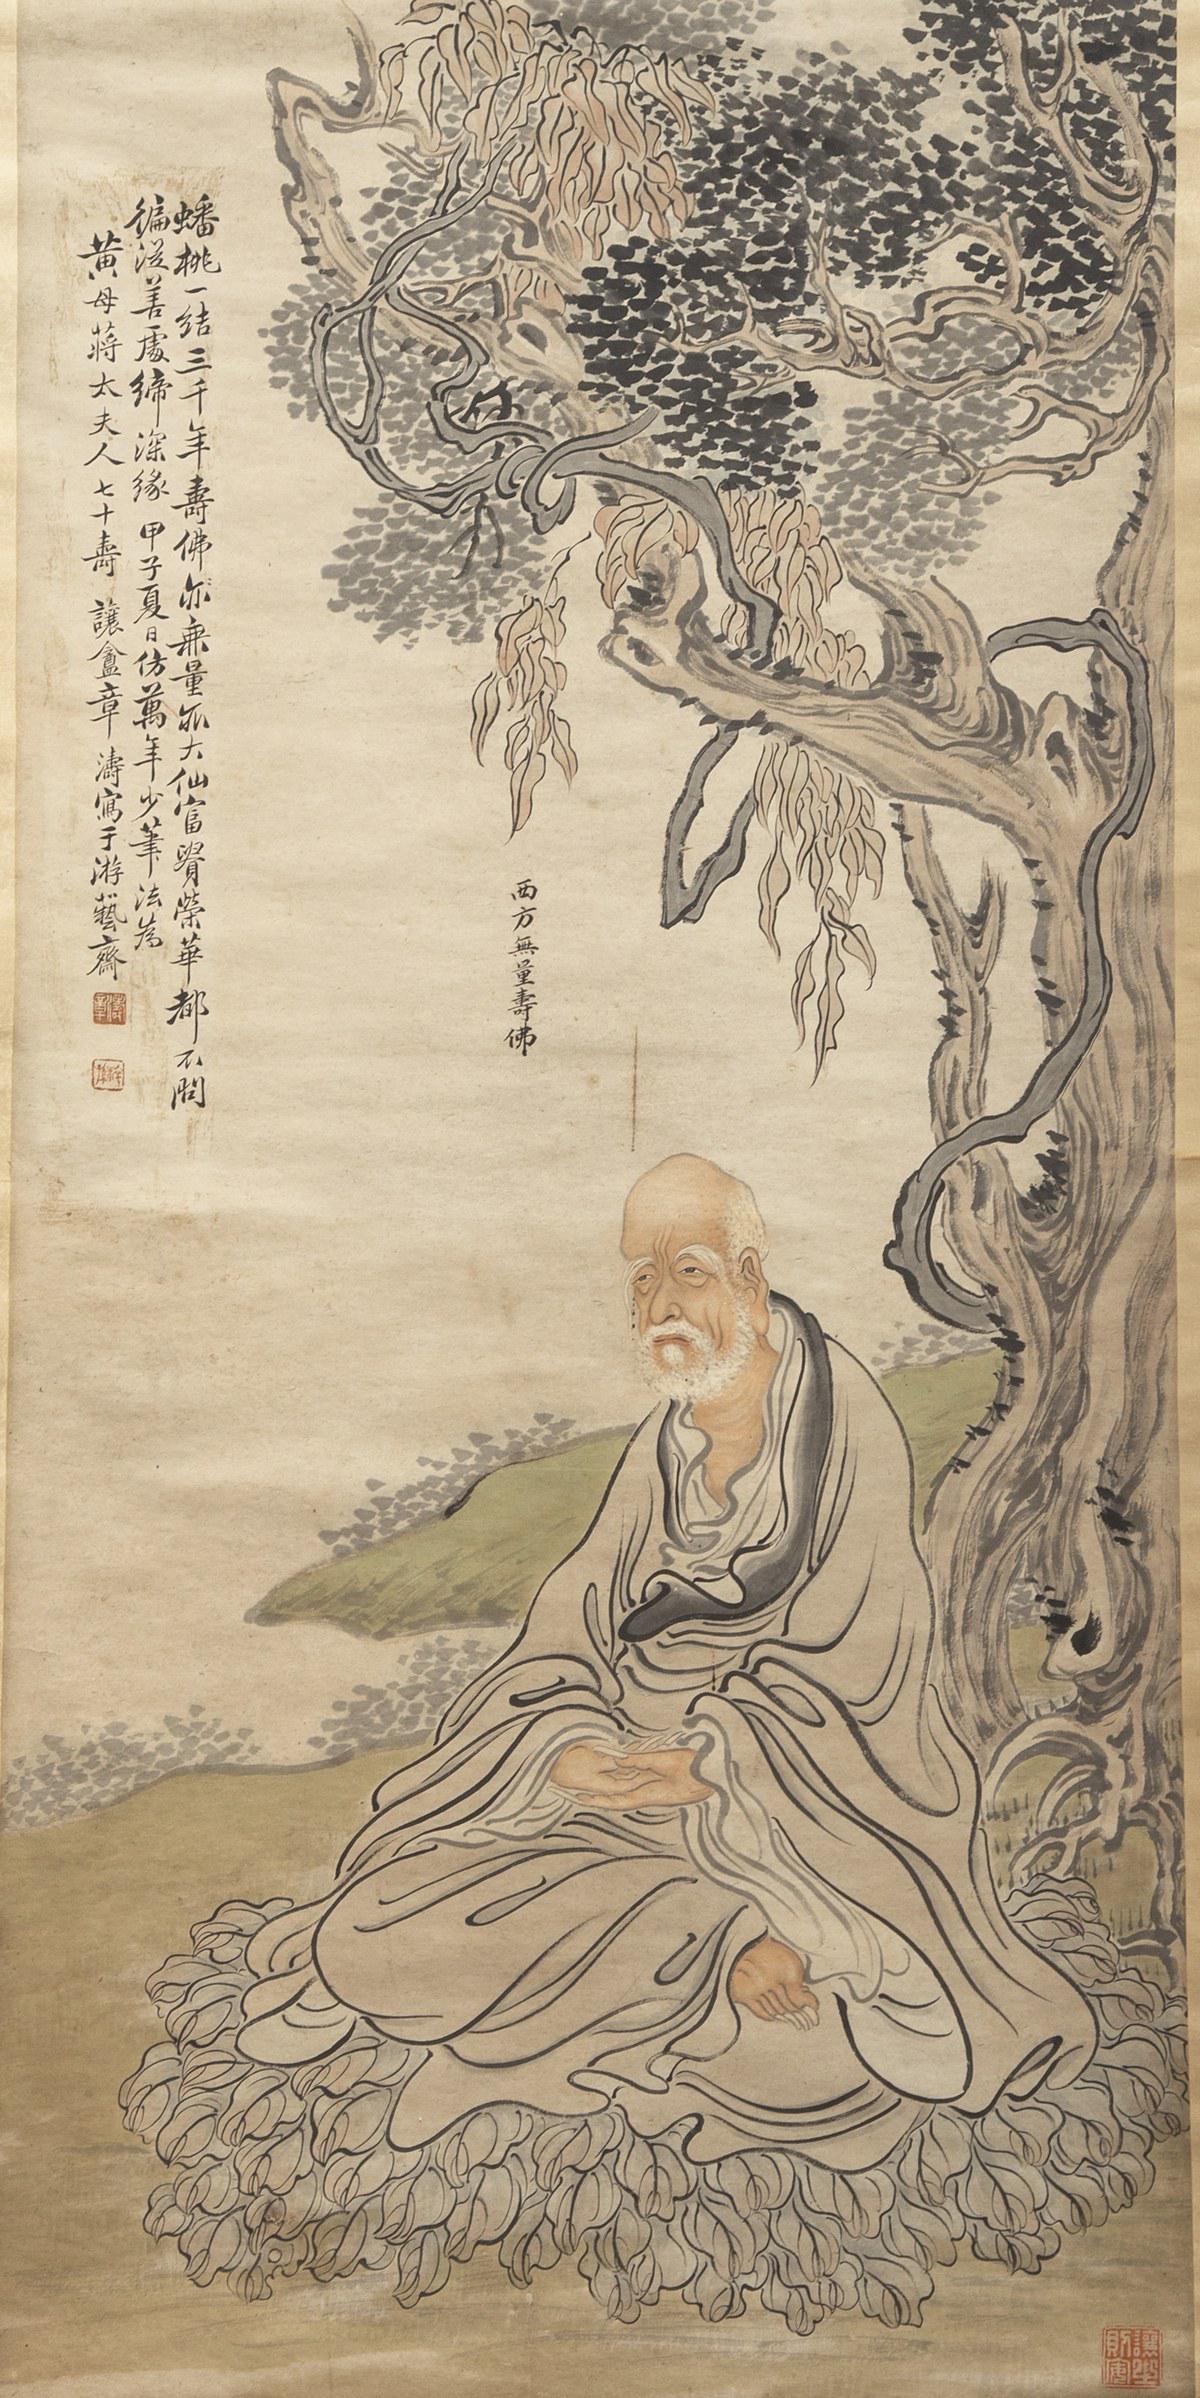 蟠桃一結三千年壽佛亦無量
大仙富貴榮華都不問
徧従善處締深緣 甲子夏日仿萬年少筆法為
黃母蔣太夫人七十壽 讓盦章濤寫于游藝齋
西方無量壽佛